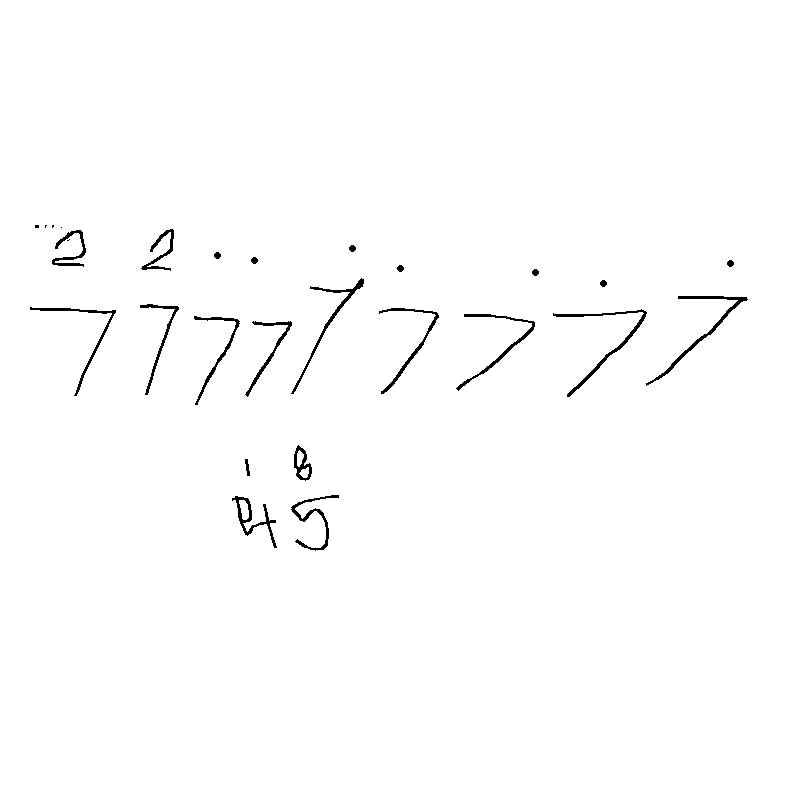 2 2 . . . . . . .
7 7 7 7 7 7 7 7 7
1 8
4 5